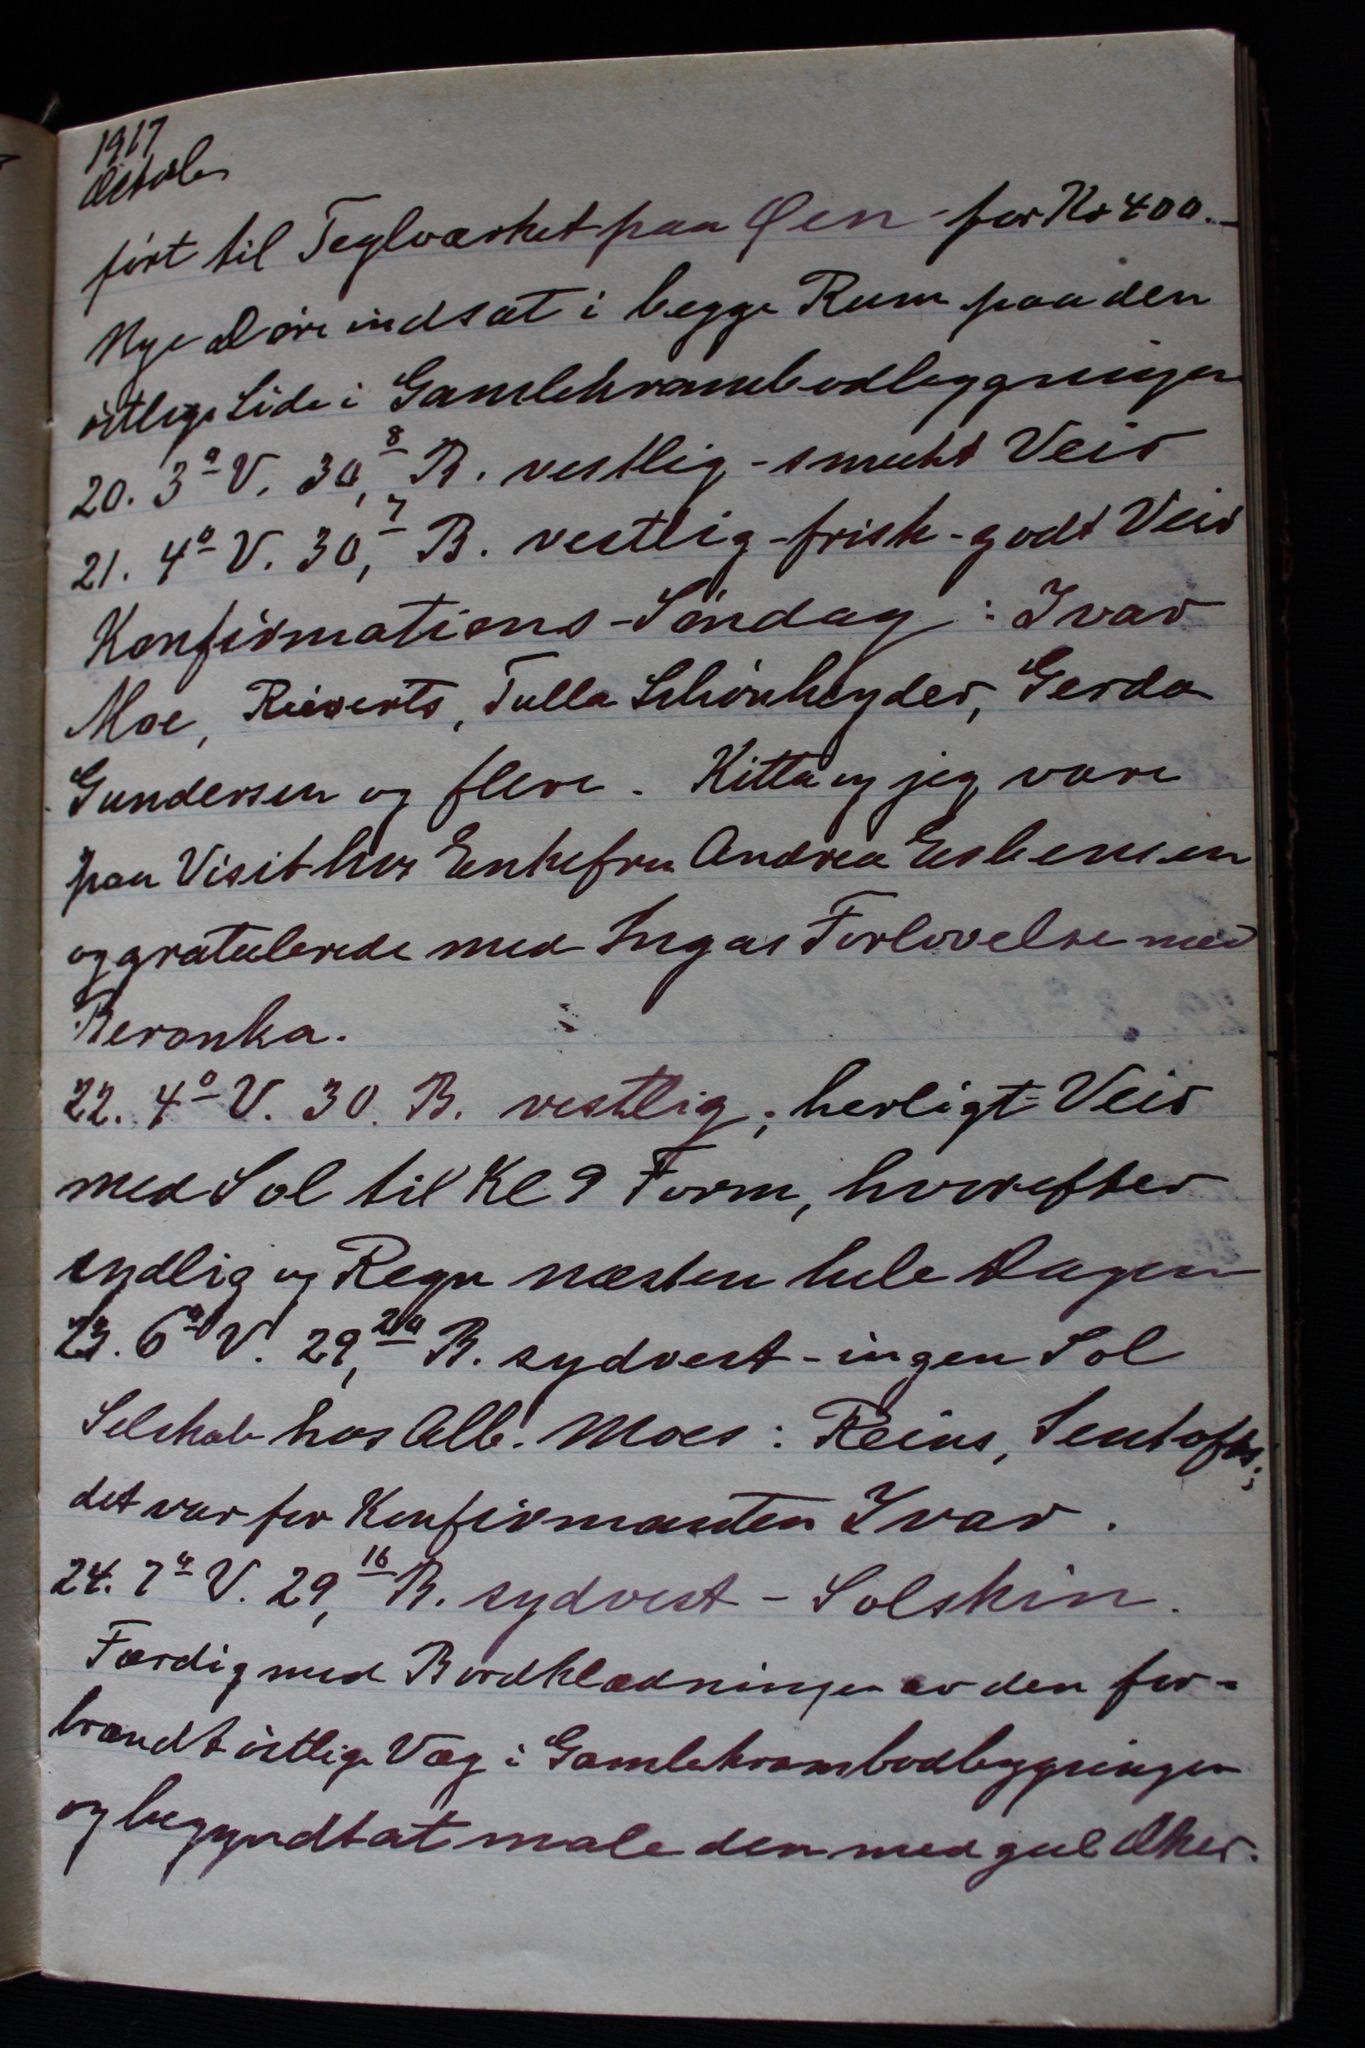 1917
October
ført til Teglværket paa Øen - for Kr 400.-
Nye Døre indsat i begge Rum paa den
østlige Side i Gamlekrambodbyggningen
20. 3° V. 30,8 B. vestlig - smukt Veir
21. 4° V. 30,7 B. vestlig - frisk - godt Veir
Konfirmations-Søndag: Ivar
Moe, Rieverts, Tulla Schønheyder, Gerda
Gundersen og flere. Kitta og jeg vare
paa Visit hos Enkefru Andrea Esbensen
og gratulerede med Ingas Forlovelse med
Beronka.
22. 4° V. 30. B. vestlig; herligt Veir
med Sol til Kl 9 Form, hvorefter
sydlig og Regn næsten hele Dagen
23. 6° V. 29,20 B. sydvest - ingen Sol
Selskab hos Alb. Moes: Reins, Sentofts;
det var for Konfirmanten Ivar.
24. 7° V. 29,16 B. sydvest - Solskin.
Færdig med Bordklædningen av den for-
brændt østlige Væg i Gamlekrambodbyggningen
og begyndt at male den med gul Oker.